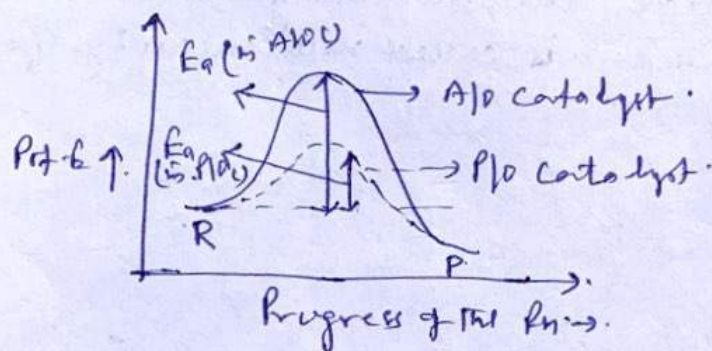 Ea (in A/o C)
A/o catalyst.
Pot. E ↑.
Ea
(in P/o C)
P/o catalyst.
R
P
Progress of the Rxn →.